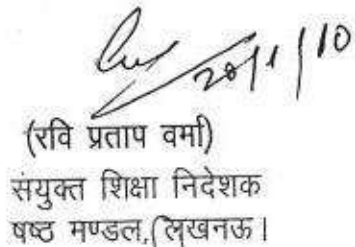 28/1/10
(रवि प्रताप वर्मा)
संयुक्त शिक्षा निदेशक
षष्ठ मण्डल,(लखनऊ।